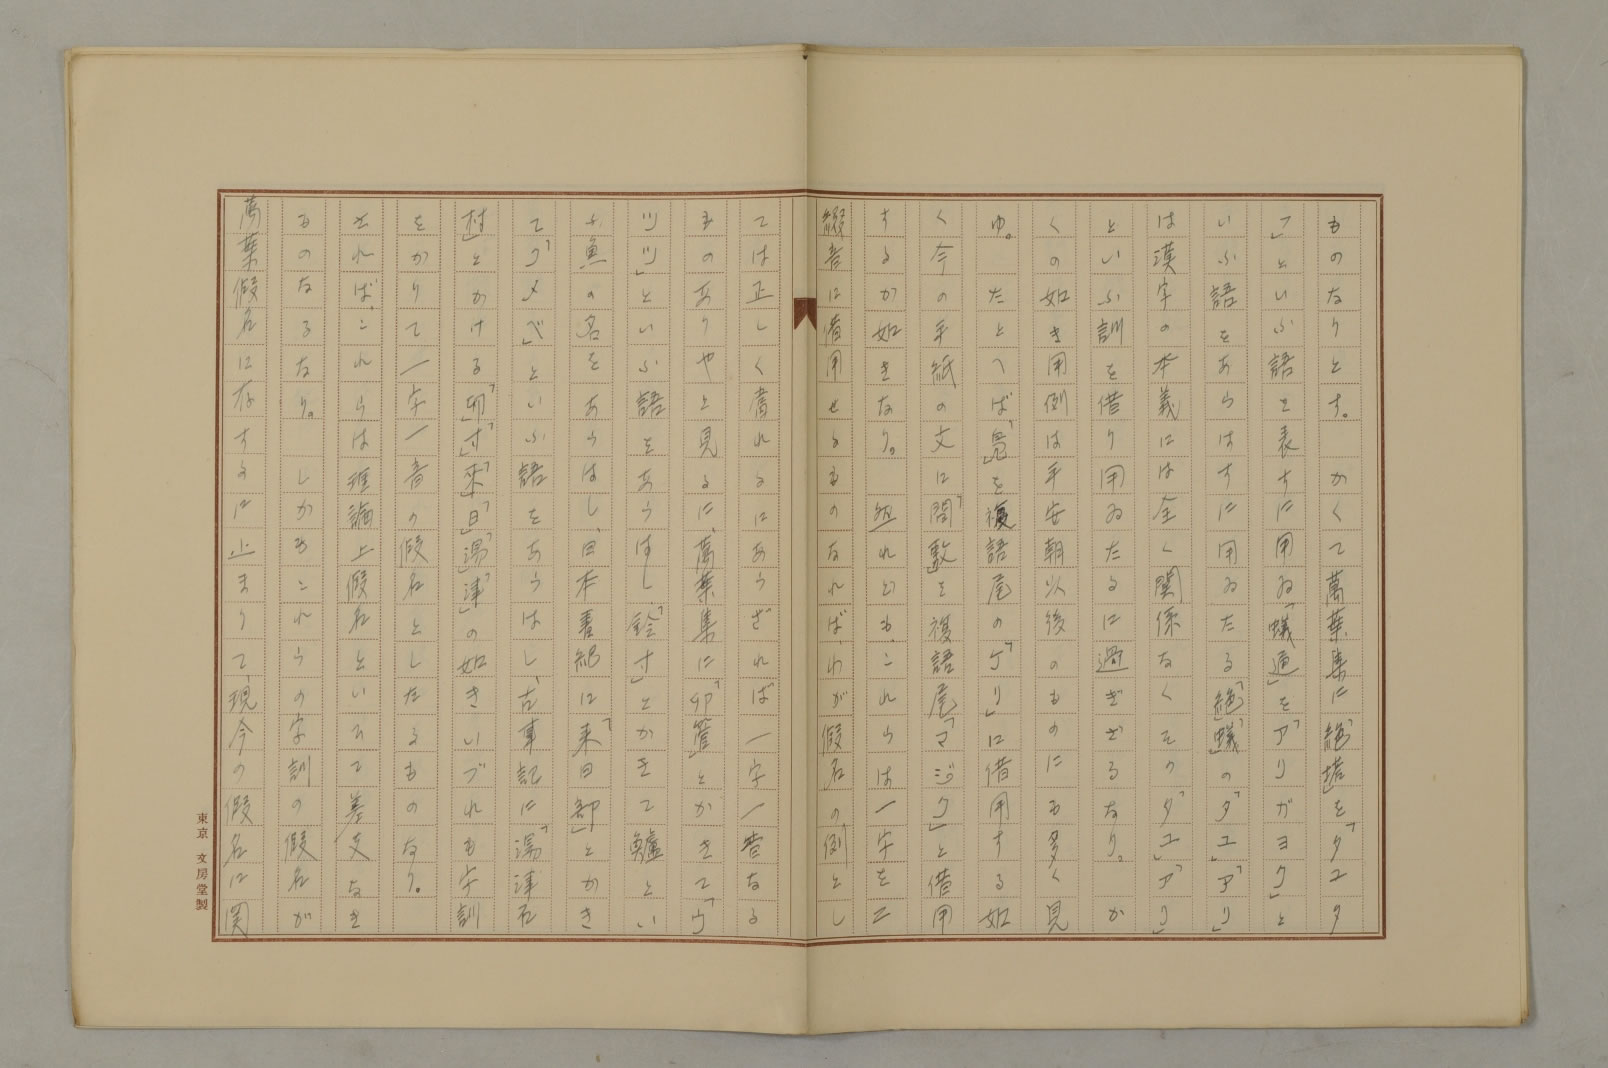 ものなりとす。　かくて萬葉集に「絶塔」を「タユタ
フ」といふ語を表すに用ゐ「蟻通」を「アリガヨウ」と
いふ語をあらはすに用ゐたる「絶」「蟻」の「タユ」「アリ」
は漢字の本義には全く関係なくその「タユ」「アリ」
といふ訓を借り用ゐたるに過ぎざるなり。　か
くの如き用例は平安朝以後のものにも多く見
ゆ。　たとへば「鳧」を複語尾の「ケリ」に借用する如
く今の手紙の文に「間敷」を複語尾「マジク」と借用
するが如きなり。　然れども、これらは一字を二
綴音に借用せるものなれば、わが假名の例とし
ては正しく當れるにあらざれば一字一音なる
ものありやと見るに、萬葉集に「卯管」とかきて「ウ
ツツ」といふ語をあらはし、「鈴寸」とかきて鱸とい
ふ魚の名をあらはし、日本書紀に「来目部」とかき
て「クメベ」といふ語をあらはし、古事記に「湯津石
村」とかける「卯」「寸」「来」「目」「湯」「津」の如きいづれも字訓
をかりて一字一音の假名としたるものなり。
されば、これらは理論上假名といひて差支なき
ものなるなり。　しかもこれらの字訓の假名が
萬葉假名に存するに止まりて、現今の假名に関
東京 文房堂製